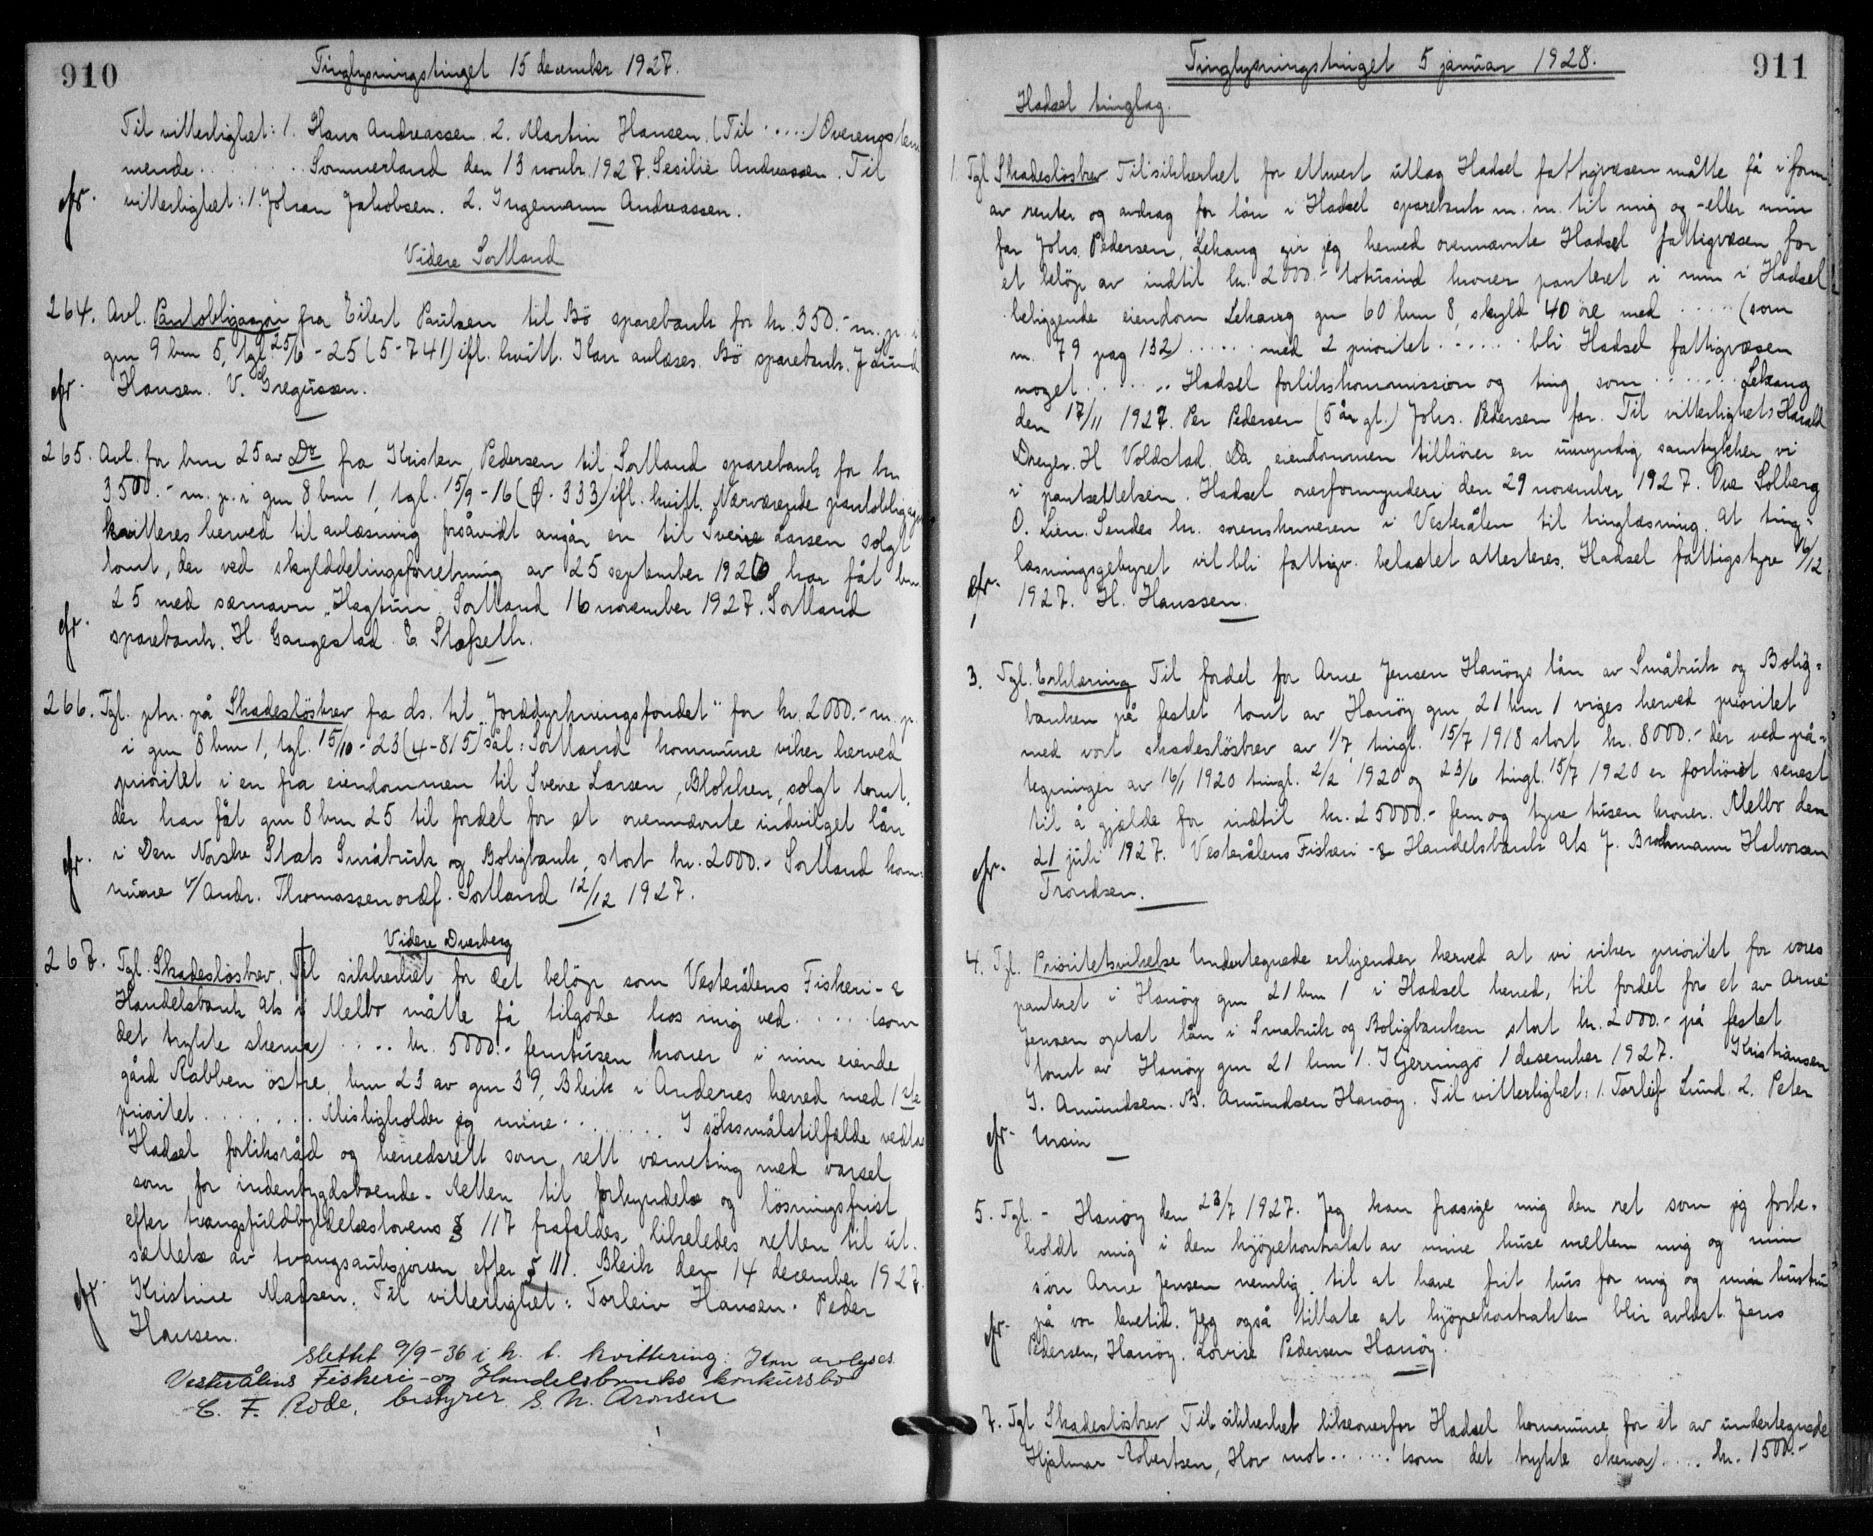 910
Tinglysningstinget 15 december 1927.
Til vitterlighet: 1. Hans Andreassen. 2. Martin Hansen. (Til ....) Overensstem
mende ........ Sommerland den 13 novbr. 1927. Sesilie Andreassen. Til
vitterlighet: 1. Johan Jakobsen. 2. Ingemann Andreassen.
Videre Sortland
264. Avl. Pantobligasjon fra Eilert Paulsen til Bö sparebank for kr. 350.- m. p. i
gnr 9 bnr 5, tgl. 25/6 - 25 (5-741) ifl. kvitt. Kan avlæses. Bö sparebank. J Lund
Hansen. V. Gregussen.
265. Avl. for bnr 25 av Do fra Kristen Pedersen til Sortland sparebank for kr
3500.- m. p. i gnr 8 bnr 1, tgl. 15/9 - 16 (Ø. 333) ifl. kvitt. Nærværende pantobligasjon
kvitteres herved til avlæsning forsåvidt angår en til Sverre Larsen solgt
tomt, der ved skylddelingsforretning av 25 september 1926 har fåt bnr
25 med særnavn "Hagtun". Sortland 16 november 1927. Sortland
sparebank. H Gangestad E. Stafseth.
266. Tgl. ptn. på Skadeslösbrev fra ds. til "Jorddyrkningsfondet" for kr. 2000.- m. p.
i gnr 8 bnr 1, tgl. 15/10 - 23 (4-815) sål: Sortland kommune viker herved
prioritet i en fra eiendommen til Sverre Larsen, Blokken, solgt tomt,
der har fåt gnr 8 bnr 25 til fordel for et ovennævnte indvilget lån
i Den Norske Stats Småbruk og Boligbank, stort kr. 2000.- Sortland kom-
mune v/ Andr. Thomassen ordf. Sortland 12/12 1927.
Videre Dverberg
267. Tgl. Skadeslösbrev. Til sikkerhet for det belöp som Vesterålens Fiskeri- &
Handelsbank A/s i Melbo måtte få tilgode hos mig ved ..... (som
det trykte skema) .... kr. 5000.- femtusen kroner i min eiende
gård Rabben östre, bnr 23 av gnr 39, Bleik i Andenes herred med 1ste
prioritet ........ Misligholder jeg mine ........ I söksmålstilfælde vedtas
Hadsel forliksråd og herredsrett som rett værneting med varsel
som for indenbygdsboende. Retten til forkyndelse og lösningsfrist
efter tvangsfuldbyrdelseslovens § 117 frafaldes, likeledes retten til ut-
sættelse av tvangsauksjonen efter § 111. Bleik den 14 december 1927.
Kristine Madsen. Til vitterlighet: Torleiv Hansen. Peder
Hansen.
Slettet 9/9-36 i h. t. kvittering: Kan avlyses
Vesterålens Fiskeri- og Handelsbanks konkursbo
C. F. Rode, bestyrer. E. N. Aronsen
911
Tinglysningstinget 5 januar 1928.
Hadsel tinglag.
1. Tgl Skadeslösbrev Til sikkerhet for ethvert utlæg Hadsel fattigvæsen måtte få i form
av renter og avdrag for lån i Hadsel sparebank m. m. til mig og -eller min
far Johs. Pedersen, Lekang gir jeg herved ovennævnte Hadsel fattigvæsen for
et belöp av indtil kr. 2000.- totusind kroner panteret i min i Hadsel
beliggende eiendom Lekang gnr 60 bnr 8, skyld 40 öre med ..... (som
m. 79 pag 132) ...... med 2 prioritet ...... bli Hadsel fattigvæsen
noget ....... Hadsel forlikskommission og ting som ....... Lekang
den 17/11 1927. Per Pedersen (5 år gl.) Johs. Pedersen far. Til vitterlighet: Harald
Dreyer. H Voldstad. Da eiendommen tilhörer en umyndig samtykker vi
i pantsettelsen. Hadsel overformynderi den 29 november 1927. Ove Solberg
O. Lien. Sendes hr. sorenskriveren i Vesterålen til tinglæsning. At ting-
læsningsgebyret vil bli fattigv. belastet attesteres. Hadsel fattigstyre 16/12
1927. H. Hanssen.
3. Tgl. Erklæring Til fordel for Arne Jensen Hanöys lån av Småbruk og Bolig-
banken på festet tomt av Hanöy gnr 21 bnr 1 viges herved prioritet
med vort skadeslösbrev av 1/7, tingl. 15/7 1918 stort kr. 8000.- der ved på-
tegninger av 16/1 1920 tingl. 2/2 1920 og 23/6 tingl. 15/7 1920 er forhöiet senest
til å gjælde for indtil kr. 25000.- femogtyve tusen kroner. Melbo den
21 juli 1927. Vesterålens Fiskeri- & Handelsbank A/s J. Brochmann Halvorsen
Trondsen.
4. Tgl. Prioritetsvikelse Undertegnede erkjender herved at vi viker prioritet for vores
panteret i Hanöy gnr 21 bnr 1 i Hadsel herred, til fordel for et av Arne
Jensen optat lån i Småbruk og Boligbanken stort kr. 2000.- på festet
tomt av Hanöy gnr 21 bnr 1. Kjerringö 1 desember 1927. Kristiansen
J. Amundsen. B. Amundsen Hanöy. Til vitterlighet: 1. Torleif Lund 2. Peter
Ursin
5. Tgl. - Hanöy den 23/7 1927. Jeg kan frasige mig den ret som jeg forbe-
holdt mig i den kjöpekontrakt av mine huse mellem mig og min
sön Arne Jensen nemlig til at have frit hus for mig og min hustru
på vor levetid. Jeg også tillate at kjöpekontrakten blir avlöst. Jens
Pedersen, Hanöy. Lovise Pedersen Hanöy.
7. Tgl Skadeslösbrev Til sikkerhet likeoverfor Hadsel kommune for et av undertegnede
Hjalmar Robertsen, Hov mot ...... (som det trykte skema) .... kr. 1500.-